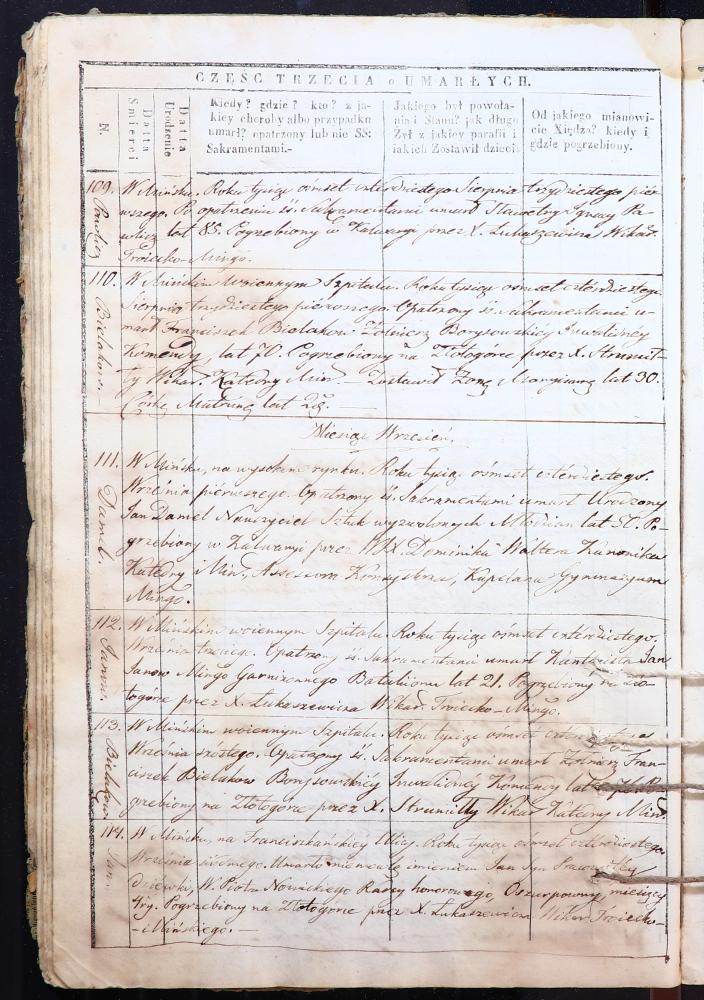 CZĘŚĆ TRZECIA o UMARŁYCH.
N.
Datta Smierci
Datta Urodzenie
Kiedy? gdzie? kto? z ja-
kiey choroby albo przypadku
umarł? opatrzony lub nie SS:
Sakramentami.-
Jakiego był powoła-
nia i Stanu? jak długo
Żył z jakiey parafii i
jakich Zostawił dzieci.
Od jakiego mianowi-
cie Xiędza? kiedy i
gdzie pogrzebiony.
109. W Mińsku. Roku tysiąc ośmset czterdziestego Sierpnia trzydziestego pier-
wszego. Po opatrzeniu śś. Sakramentami umarł Sławetny Ignacy Pa-
wlicz lat 85. Pogrzebiony w Kalwaryi przez X. Łukaszewicza Wikar.
Troiecko-Mingo.
110. W Mińskim woiennym Szpitalu. Roku tysiąc ośmset czterdziestego
Bielakow.
Sierpnia trzydziestego pierwszego. Opatrzony śś. Sakramentami u-
marł Franciszek Bielakow Żołnierz Borysowskiey Inwalidney
Komendy, lat 70. Pogrzebiony na Złotogórce przez X. Strumił-
ły Wikar. Katedry Miń. — Zostawił Żonę lat 30.
Córkę Matronę lat
Miesiąc Wrzesień.
111. W Mińsku, na wysokim rynku. Roku tysiąc ośmset czterdziestego.
Damel.
Września pierwszego. Opatrzony śś. Sakramentami umarł Urodzony
Jan Damel Nauczyciel Sztuk wyzwolonych Młodzian lat 50. Po-
grzebiony w Kalwaryi przez WJX. Dominika Waltera Kanonika
Katedry Miń., Assessora Konsystorza, Kapelana Gymnazyum
Mingo.
112. W Mińskim woiennym Szpitalu. Roku tysiąc ośmset czterdziestego.
Janow.
Września trzeciego. Opatrzony śś. Sakramentami umarł Kantonista Jan
Janow Mingo Garnizonnego Batalionu lat 21. Pogrzebiony na Zło-
togórce przez X. Łukaszewicza Wikar. Troiecko-Mingo.
113. W Mińskim woiennym Szpitalu. Roku tysiąc ośmset
Bielakow
Września szóstego. Opatrzony śś. Sakramentami umarł Żołnierz Fran-
ciszek Bielakow Borysowskiey Inwalidney Komendy lat Po-
grzebiony na Złotogórce przez X. Strumiłły Wikar Katedry Miń.
114. W Mińsku, na Franciszkańskiey Ulicy. Roku tysiąc ośmset czterdziestego
Jan.
Września siódmego. Umarło niemowlę imieniem Jan Syn
dziewki, W. Piotra Nowickiego Radcy honorowego, miesięcy
try. Pogrzebiony na Złotogórce przez X. Łukaszewicza Wikar Troiecko-
-Mińskiego. —